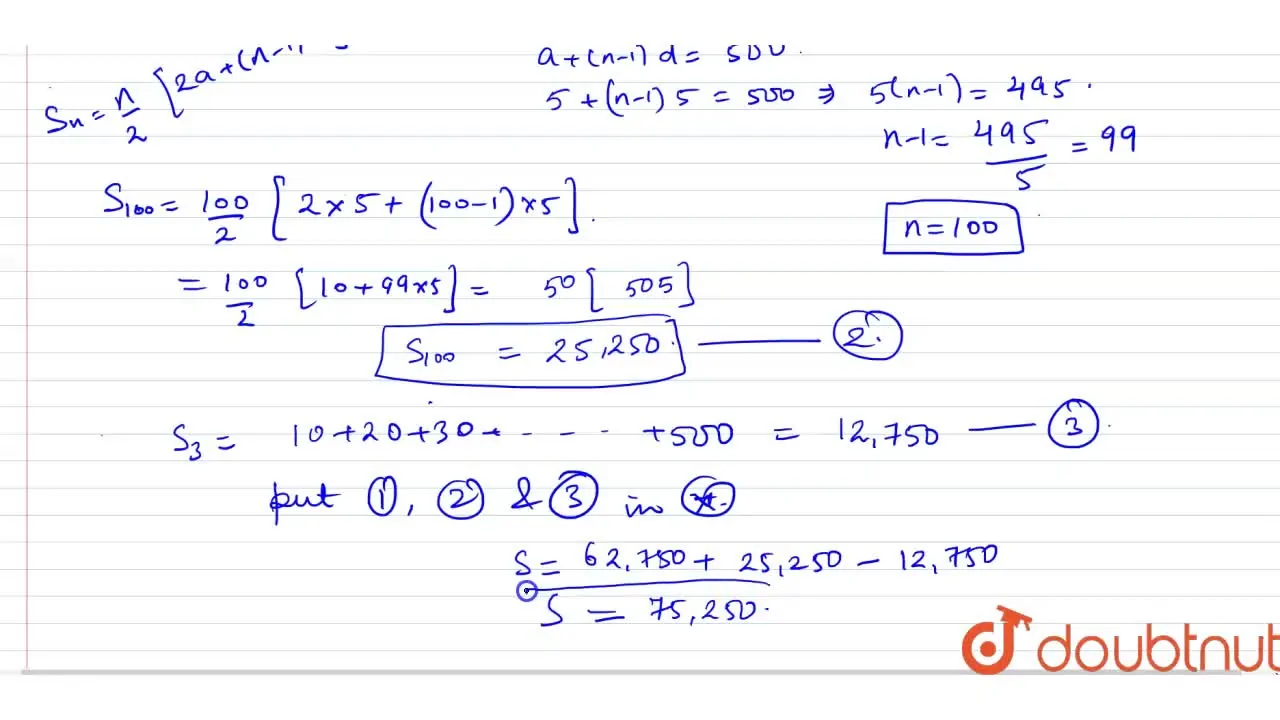 a + (n-1) d = 500.
5 + (n-1) 5 = 500 ⇒ 5(n-1) = 495.
Sn = n/2 [2a + (n-1)
n-1 = 495/5 = 99
n = 100
S100 = 100/2 [2×5 + (100-1)×5].
= 100/2 [10 + 99×5] = 50 [505]
S100 = 25,250. —— 2.
S3 = 10+20+30+ - - - - +500 = 12,750 —— 3.
put 1, 2 & 3 in *.
S = 62,750 + 25,250 − 12,750
S = 75,250.
doubtnut